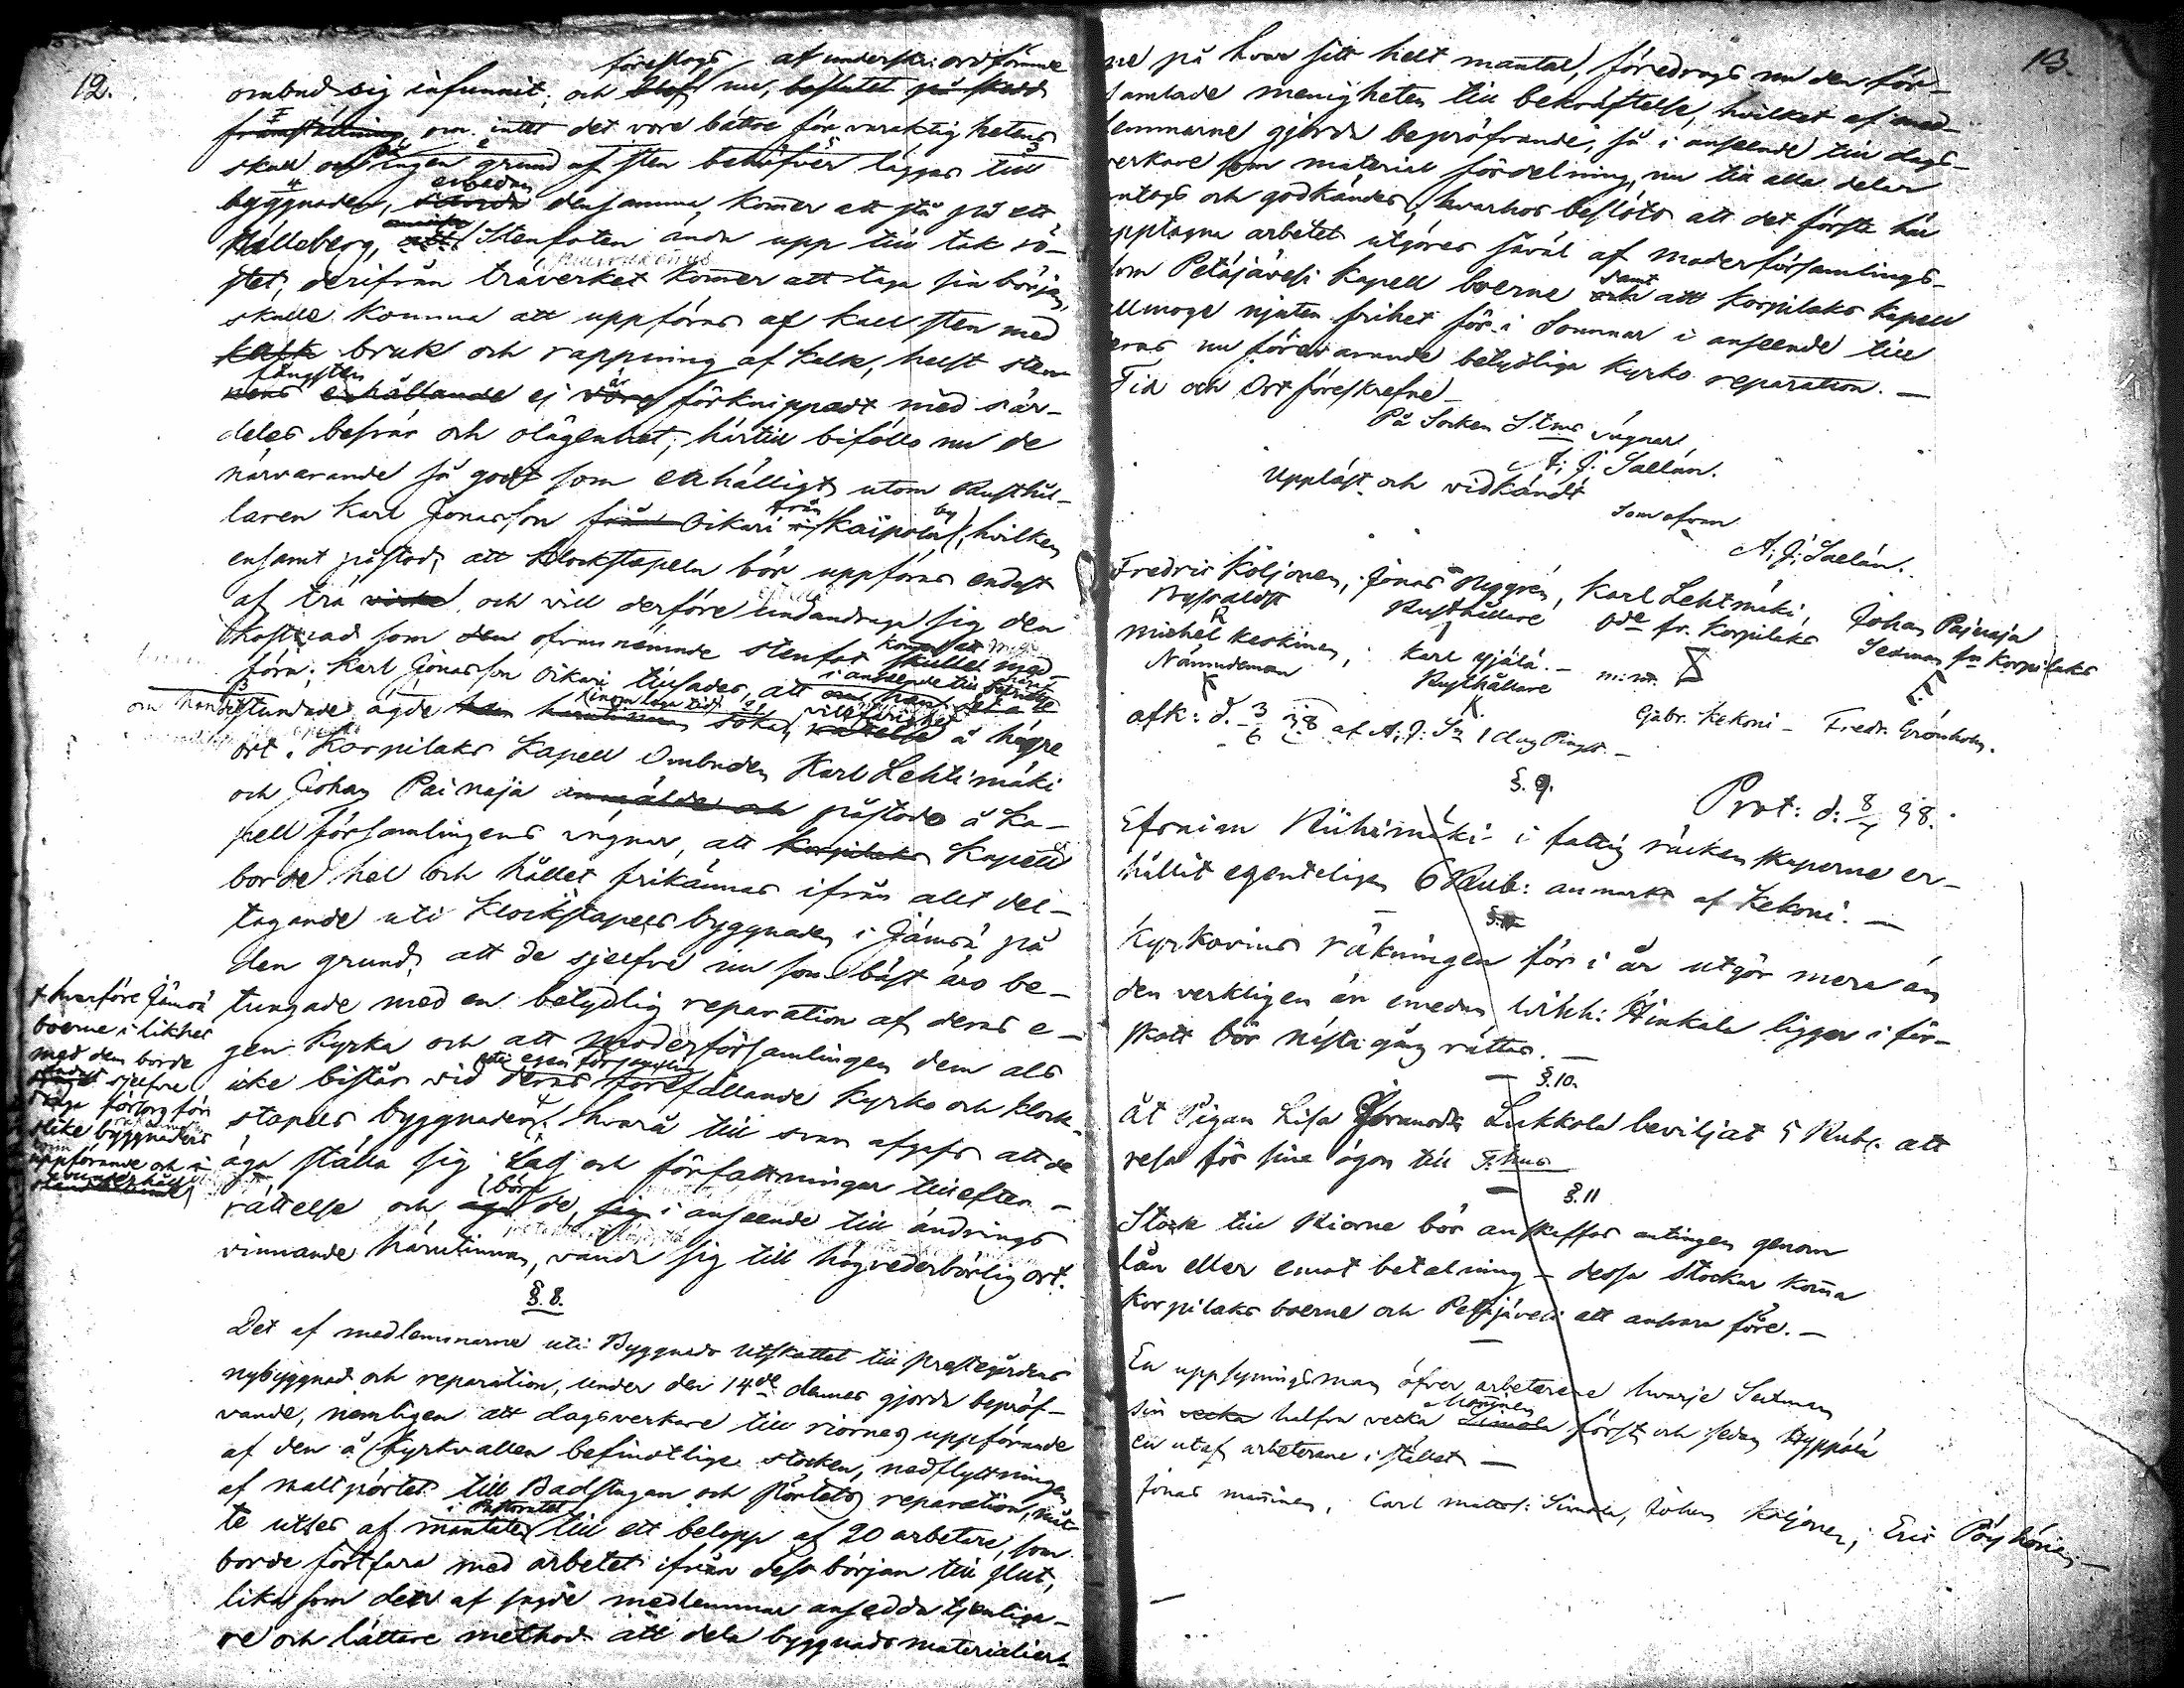 12.
föreslogs af underskr: ordförande
ombud sig infunnit; och blef nu, beslutet på skedd
framställning, om intet det vore bättre för varaktighetens
skull och ingen grund af sten behöfver läggas till
byggnaden, emedan densamma kom̄er att stå på ett
Hälleberg, att Stenfoten ända upp till tak rö-
stet, derifrån träverket kom̄er att taga sin början,
skulle komma att uppföras af kall sten med
kalk bruk och rappning af kalk, helst sten
fångsten
nens erhållande ej är vore förknippadt med sär-
deles besvär och olägenhet; härtill biföllo nu de
närvarande så godt som enhälligt, utom Rusthål-
laren Karl Jonasson från Oikari i Kaipola by, hvilken
ensamt påstod, att klockstapeln bör uppföras endast
af trä virke, och vill derföre undandraga sig den
kostnad som den ofvannämnde stenfot kom̄er att skulle med-
föra; Karl Jonasson Oikari tillsades, att om han
i anseende till
åstundade ägde han häruti̅n̅an inom laga tid söka rättelse å högre
villfarighet
ort. Korpilaks Kapell Ombuden Karl Lehtimäki
och Johan Painaja anmälde och påstodo å Ka-
pell församlingens vägnar, att Korpilaks Kapell
borde hel och hållet frikännas ifrån allt del-
tagande uti klockstapels byggnaden i Jämsä på
den grund, att de sjelfve nu som bäst äro be-
tungade med en betydlig reparation af deras e-
gen kyrka och att moderförsamlingen dem als
icke bistår vid deras uti egen församling förefallande kyrko och klock-
stapels byggnader; hvarå till svar afgafs att de
äga ställa sig Lag och författningar till efter-
rättelse och äga böra de, sig i anseende till ändrings
vinnande häruti̅n̅an, vända sig till högvederbörlig ort.
† hvarföre Jämsä
boerne i likhet
med dem borde
endast sjelfve
draga försorg för
slike byggnaders
uppförande och
underhåll
§. 8.
Det af medlemmarne uti Byggnads Utskottet till prestegårdens
nybyggnad och reparation, under den 14de dennes gjorde bepröf-
vande, nemligen att dagsverkare till riornes uppförande
af den å Kyrkvallen befindtliga stocken, nedflyttningen
af maltpörtet till Badstugan och pörtets reparation, mått-
te utses af mantalen i Pastoratet till ett belopp af 20 arbetare, som
borde fortfara med arbetet ifrån dess början till slut,
lika som den af sagde medlemmar ansedda tjenliga-
re och lättare method att dela byggnads materialier-
13.
ne på hvar sitt helt mantal, föredrogs nu den för-
samlade menigheten till bekräftelse, hvilket af med-
lemmarne gjorda bepröfvande, så i anseende till dags-
verkare som material fördelning, nu till alla delar
antogs och godkändes, hvarhos beslöts att det första här
upptagna arbetet utgöres såväl af moderförsamlings-
som Petäjävesi Kapell boerne samt och att Korpilaks Kapell
allmoge njuten frihet för i Sommar i anseende till
deras nu förevarande betydliga Kyrko reparation. —
Tid och Ort föreskrefne —
På Socken Stms vägnar
A: J: Saelän.
Uppläst och vidkändt
Som ofvan
A: J: Saelän.
Fredric Koljonen, Jonas Nyggrén, Karl Lehtimäki, Johan Painaja
Rusthållare Ode fr. Korpilaks Sexman fr Korpilaks
Michel Keskinen, Karl Yjälä. — m: m.
Nämndeman Rusthållare
Gabr. Kekoni — Fredr. Grönholm.
afk: d. 3/6 38 af A: J: Sn 1 dag Pingst. —
§. 9.
Prot: d: 8/7 38.
Efraim Riihimäki i fattig räckenskaperne er-
hållit egenteligen 6 Rub: anmärkt af Kekoni. —
Kyrkovins räkningen för i år utgör mera än
den verkligen är emedan Wihh: Hinkala ligger i för-
skott bör nästa gång rättas. —
§. 10.
Åt Pigan Lisa Göransdr Lukkola beviljat 5 Rub. att
resa för sine ögon till T:hus
§. 11
Stock till Riorne bör anskaffas antingen genom
lån eller emot betalning — dessa stockar kom̄a
Korpilaks boerne och Petäjävesi att ansvara före. —
En uppsyningsman öfver arbeterene hvarje Sexman
sin vecka halfva vecka Simola först och sedan Hyppölä
en utaf arbeterene i stället —
Jonas Man̄inen, Carl Matss: Simola, Johan Koljonen, Eric Pöyhönen —